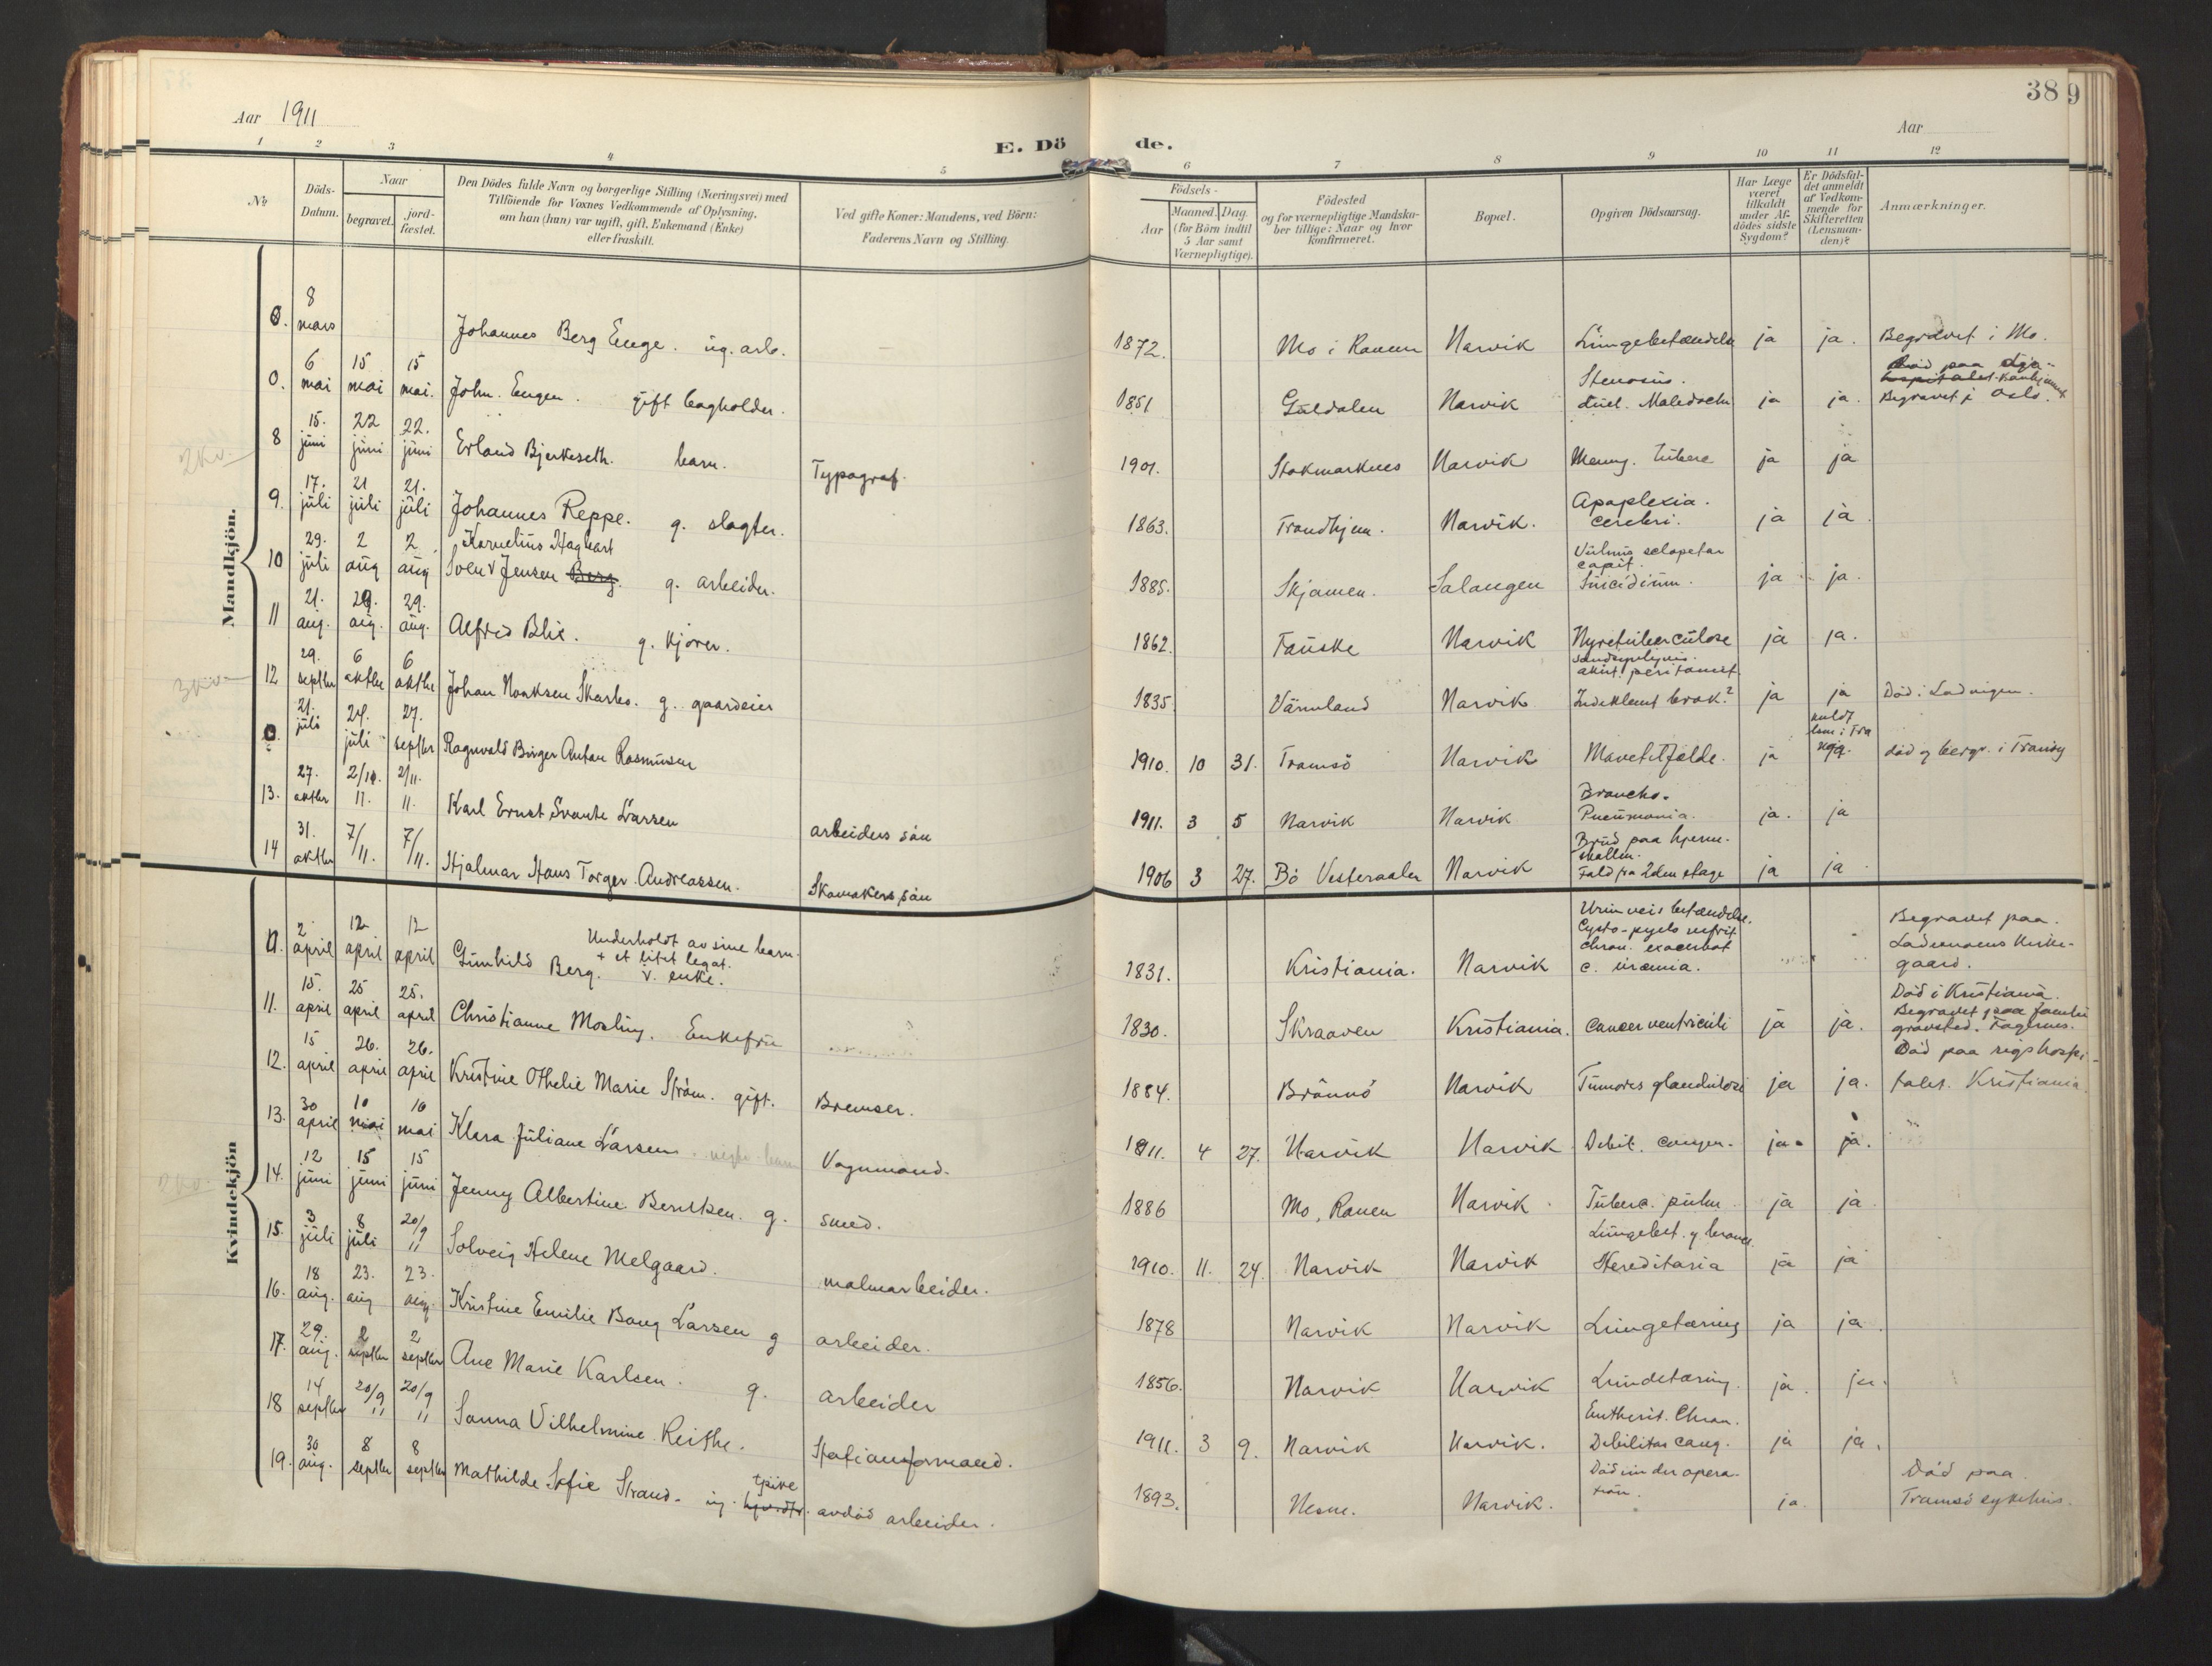 389
Aar 1911
Aar
E. Dö de.
1 2 3 4 5 6 7 8 9 10 11 12
No
Döds-Datum.
Naar
begravet.
jord-fæstet.
Den Dödes fulde Navn og borgerlige Stilling (Næringsvei) med
Tilföiende for Voxnes Vedkommende af Oplysning,
om han (hun) var ugift, gift, Enkemand (Enke)
eller fraskilt.
Ved gifte Koner: Mandens, ved Börn:
Faderens Navn og Stilling.
Födsels-
Aar
Maaned. Dag.
(for Börn indtil
5 Aar samt
Værnepligtige).
Födested
og for værnepligtige Mandska-
ber tillige: Naar og hvor
konfirmeret.
Bopæl.
Opgiven Dödsaarsag.
Har Læge
været
tilkaldt
under Af-
dödes sidste
Sygdom?
Er Dödsfal-
det anmeldt
af Vedkom-
mende for
Skifteretten
(Lensman-
den)?
Anmærkninger.
Mandkjön.
0. 8 mars Johannes Berg Enge. ug. arb. 1872. Mo i Ranen Narvik Lungebetændelse ja ja. Begravet i Mo.
0. 6 mai 15 mai 15 mai. John. Engen. gift bagholder. 1851 Guldalen Narvik Stenosus. duct. Maledochi ja ja. Begravet i Oslo.
8 15. juni 22 juni 22. juni Erland Bjerkeseth. barn. Typograf. 1901. Stokmarknes Narvik Mening. tuberc ja ja
9. 17. juli 21 juli 21. juli Johannes Reppe. g. slagter. 1863. Trondhjem. Narvik. Apoplexia. cerebri. ja ja
10 29. juli 2 aug 2. aug Kornelius Hagbart
Sven v Jensen Berg. g. arbeider. 1885. Skjomen. Salangen Vulnus sclopetar capit. Suicidium. ja ja.
11 21. aug. 29. aug. 29. aug. Alfred Blix. g. kjører. 1862. Fauske Narvik Nyretuberculose ja ja.
12 29. septbr 6 oktbr 6 oktbr Johan Noaksen Skarbo. g. gaardeier 1835. Värmland Narvik sandsynligvis. akut. peritonit. Indeklemt brok? ja ja Död i Lødingen.
0. 21. juli 24. juli 27. septbr Ragnvald Birger Anton Rasmusen 1910. 10 31. Tromsö Narvik Mavetilfælde. ja død og begr. i Tromsø
13. 27. oktbr 2/11. 2/11. Karl Ernst Svante Larsen arbeiders søn 1911. 3 5 Narvik Narvik Broncho. Pneumonia. ja. ja
14 31. oktbr 7/11. 7/11. Hjalmar Hans Torger Andreassen. Skomakers søn 1906 3 27. Bö Vesteraalen Narvik Brud paa hjerne-skallen. Fald fra 2den etage ja ja
Kvindekjön
2 april 12 april 12 april Underholdt av sine barn.
+ et litet legat.
Gunhild Berg. v. enke. 1831. Kristiania. Narvik Urinveis betændelse. Cysto-pyelo nefrit chron. exacerbat c. uræmia. Begravet paa Lademoens kirke-gaard.
11. 15. april 25 april 25. april Christianne Mosling. Enkefru 1830. Skraaven Kristiania. Cancer ventriculi ja ja. Död i Kristiania. Begravet paa familie gravsted. Fagernes.
12. 15 april 26. april 26. april Kristine Othelie Marie Ström. gift. Bremser. 1884. Brönnö Narvik Tumores glandulosi ja ja. Död paa rigshospi-talet. Kristiania
13. 30 april 10 mai 10 mai Klara Juliane Larsen. Vognmand. 1911. 4 27. Narvik Narvik Debit. congen. ja. ja.
14. 12 juni 15 juni 15 juni Jenny Albertine Berntsen. g. smed. 1886 Mo, Ranen Narvik. Tuberc. pulm ja ja.
15. 3 juli 8 juli 20/9 11 Solveig Helene Melgaard. malmarbeider. 1910. 11. 24. Narvik Narvik Lungebet. og bronch. Hereditaria ja ja
16. 18 aug. 23. aug 23. aug. Kristine Emilie Bang Larsen g arbeider. 1878 Narvik Narvik Lungetæring ja ja.
17. 29. aug. 2 septbr 2 septbr Ane Marie Karlsen. g. arbeider 1856. Narvik Narvik Lundetæring. ja. ja.
18 14 septbr 20/9 11 20/9 11 Sanna Vilhelmine Reithe. Stationsformand. 1911. 3 9. Narvik Narvik. Entherit. Chron. Debilitas cong. ja ja.
19. 30 aug. 8 septbr 8 septbr Mathilde Sofie Strand. ug. tpike avdöd arbeider. 1893. Nesne. Narvik. Död under opera-tion. ja. Död paa Tromsö sykehus.